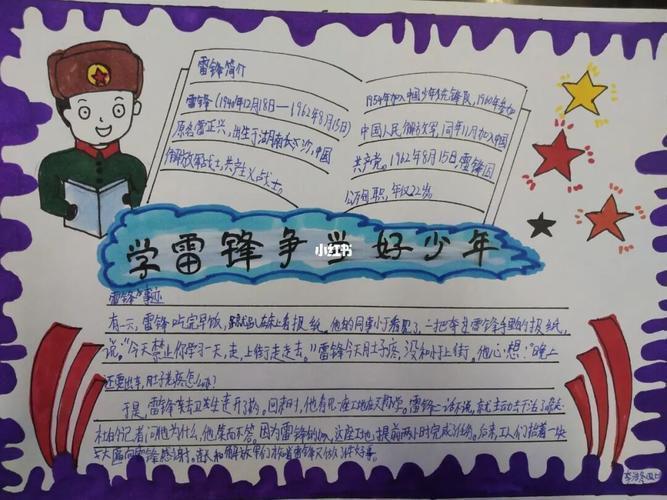 雷锋简介
雷锋(1940年12月18日——1962年8月15日)
原名雷正兴,出生于湖南长沙,中国
解放军战士,共产主义战士。
1954年加入中国少年先锋队,1960年参加
中国人民解放军,同年11月加入中国
共产党。1962年8月15日,雷锋因
公殉职,年仅22岁。
学雷锋争当好少年
小红书
雷锋事迹
有一天,雷锋吃完早饭,上看报纸。他的同事小于看见了,一把夺过雷锋手里的报纸,
说。"今天禁止你学习一天,走,上街走走去。"雷锋今天肚子疼,没和小于上街。他心想:"晚上
还要出车,肚子老疼怎么办?
于是,雷锋来去卫生连开了药。回来时,他看见一座工地在。雷锋二话不说,
记者问他为什么,他笑而不答。因为雷锋的,这座工地提前两小时完成了任务。后来,工人们抬着一块
大匾向雷锋感谢。